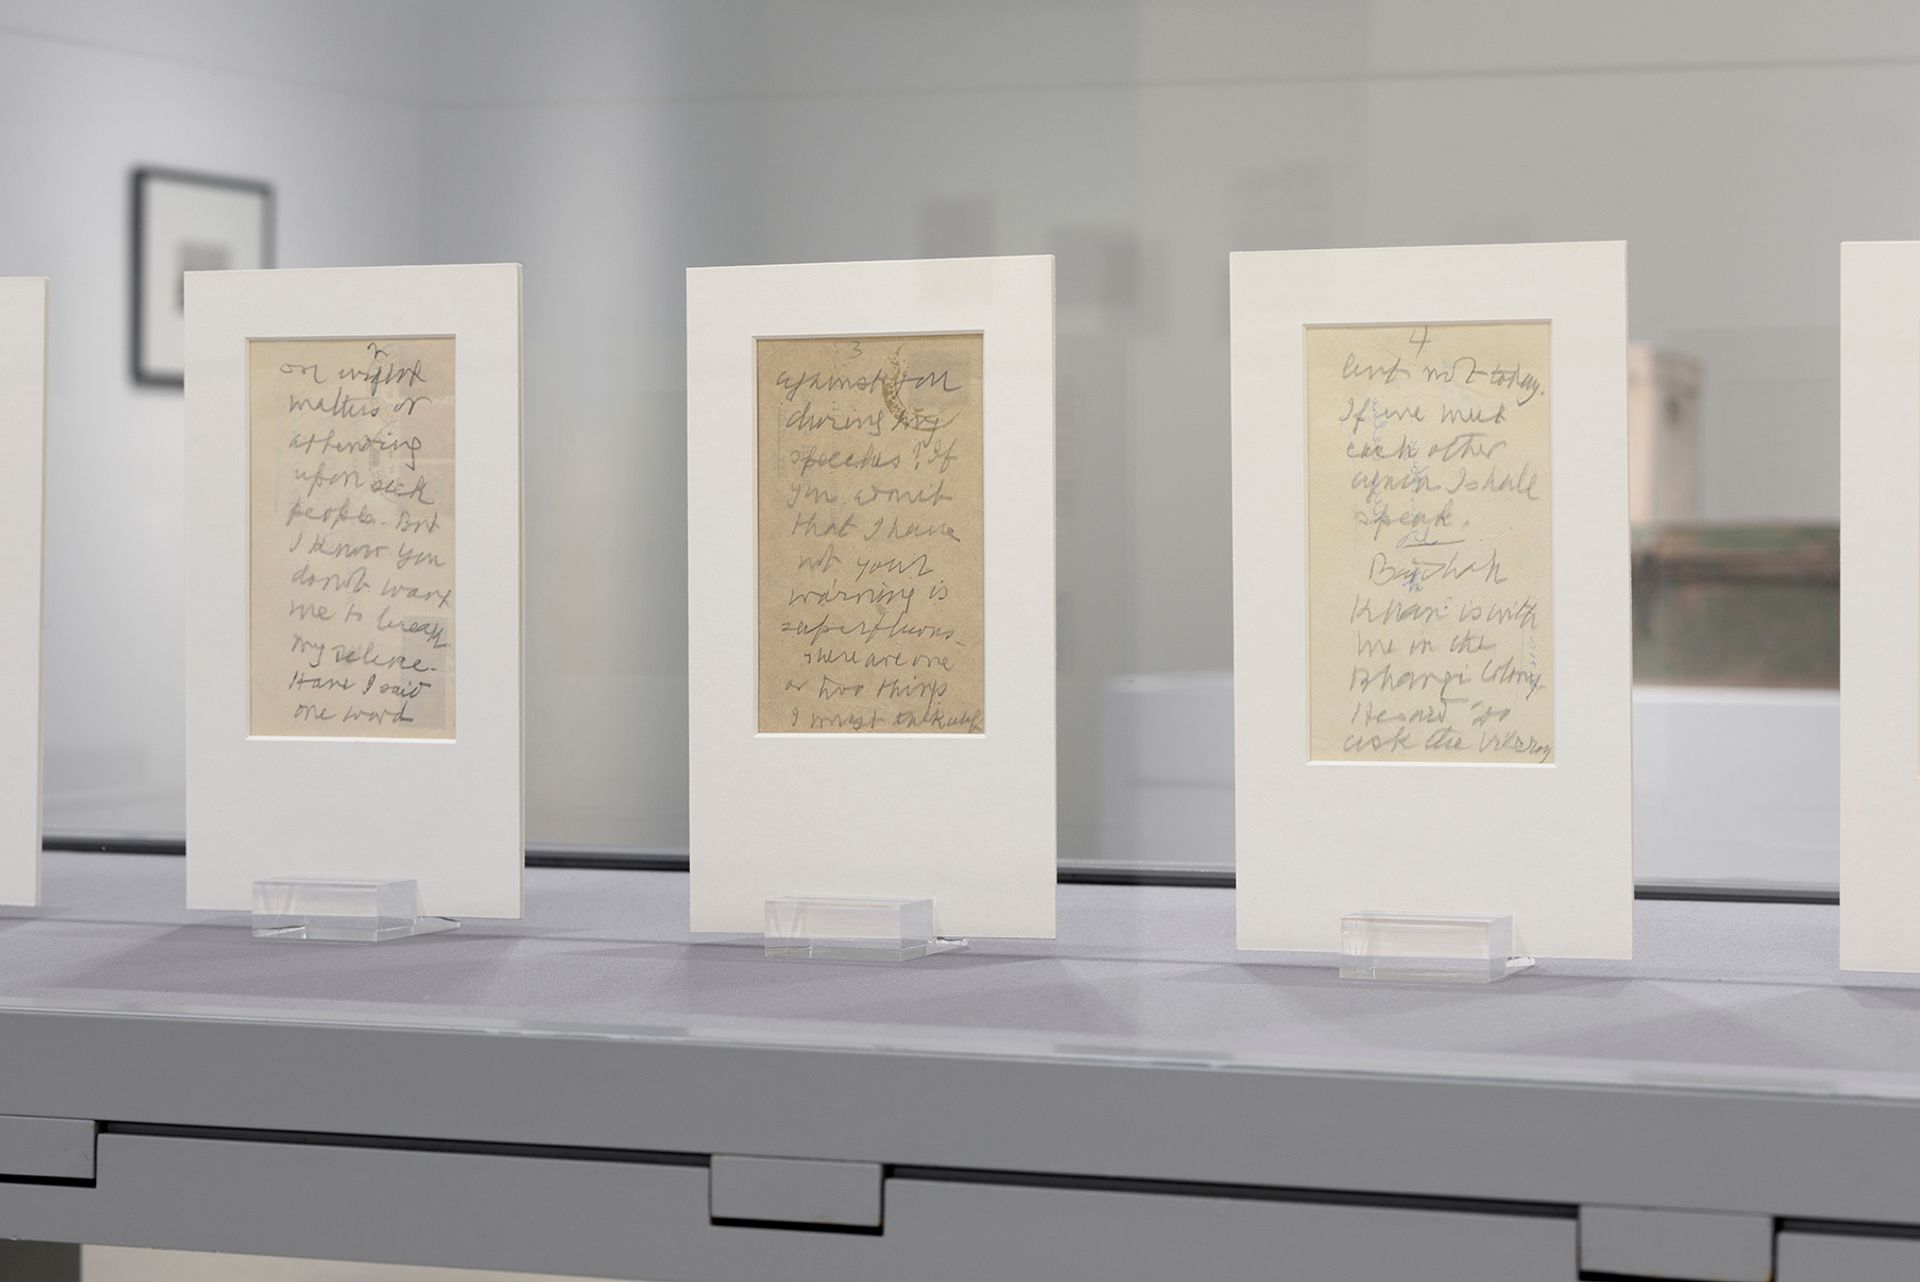 2
on urgent
matters or
attending
upon sick
people. But
I know you
donot want
me to break
my silence.
Have I said
one word
3
against you
during my
speeches? If
you admit
that I have
not your
warning is
superfluous.
There are one
or two things
I must talk about
4
but not today.
If we meet
each other
again I shall
speak.
Badshah
Khan is with
me in the
Bhangi Colony.
He said 'do
ask the Viceroy